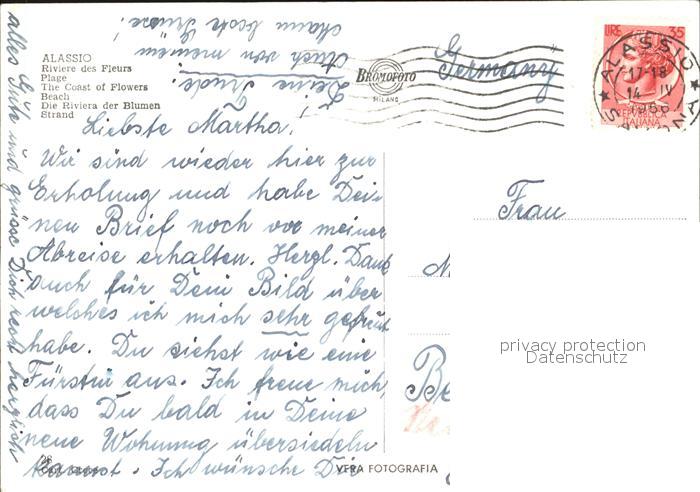 ALASSIO
Riviere des Fleurs
Plage
The Coast of Flowers
Beach
Die Riviera der Blumen
Strand
Liebste Martha!
Wir sind wieder hier zur
Erholung und habe Dei-
nen Brief noch vor meiner
Abreise erhalten. Herzl. Dank
auch für Dein Bild über
welches ich mich sehr gefreut
habe. Du siehst wie eine
Fürstin aus. Ich freue mich,
dass Du bald in Deine
neue Wohnung übersiedeln
kannst. Ich wünsche Dir
alles Gute und grüsse Dich recht herzlich
Deine Trude.
Auch von meinem
Mann beste Grüsse!
BROMOFOTO
MILANO
Germany
LIRE 35
ALASSIO
17-18
14 IV
1956
REPVBBLICA
ITALIANA
Frau
privacy protection
Datenschutz
VERA FOTOGRAFIA